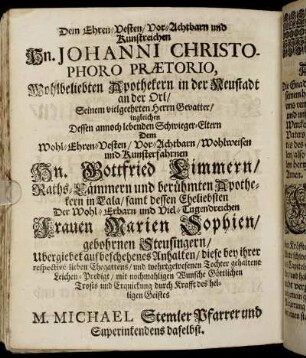 Dem Ehren/Vesten/Vor-Achtbarn und
Kunstreichen
Hn. JOHANNI CHRISTO-
PHORO PRÆTORIO,
Wohlbeliebten Apothekern in der Neustadt
an der Orl/
Seinem vielgeehrten Herrn Gevatter/
ingleichen
Dessen annoch lebenden Schwieger-Eltern
Dem
Wohl-Ehren-Vesten/Vor-Achtbarn/Wohlweisen
und Kunsterfahrnen
Hn. Gottfried Limmern/
Raths-Cämmern und berühmten Apothe-
kern in Cala/ samt dessen Eheliebsten
Der Wohl-Erbarn und Viel-Tugendreichen
Frauen Marien Sophien/
gebohrnen Steusingern/
Ubergiebet auf beschehenes Anhalten/ diese bey ihrer
respectivè lieben Ehegattens/ und wehrtgewesenen Tochter gehaltene
Leichen-Predigt/ mit nochmahligen Wunsche Göttlichen
Trosts und Erquickung durch Krafft des hei-
ligen Geistes
M. MICHAEL Stemler Pfarrer und
Superintendens daselbst.